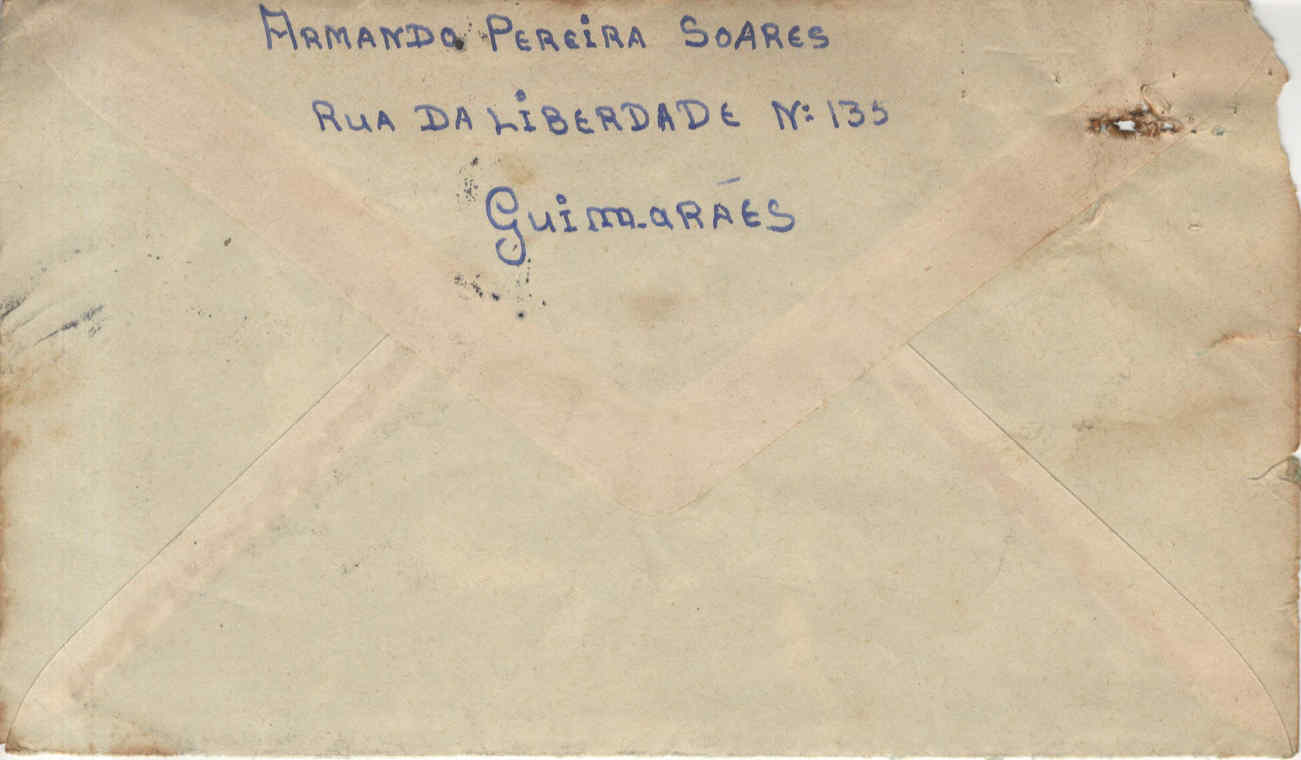 ARMANDO PEREIRA SOARES
RUA DA LIBERDADE Nº 135
GUIMARÃES